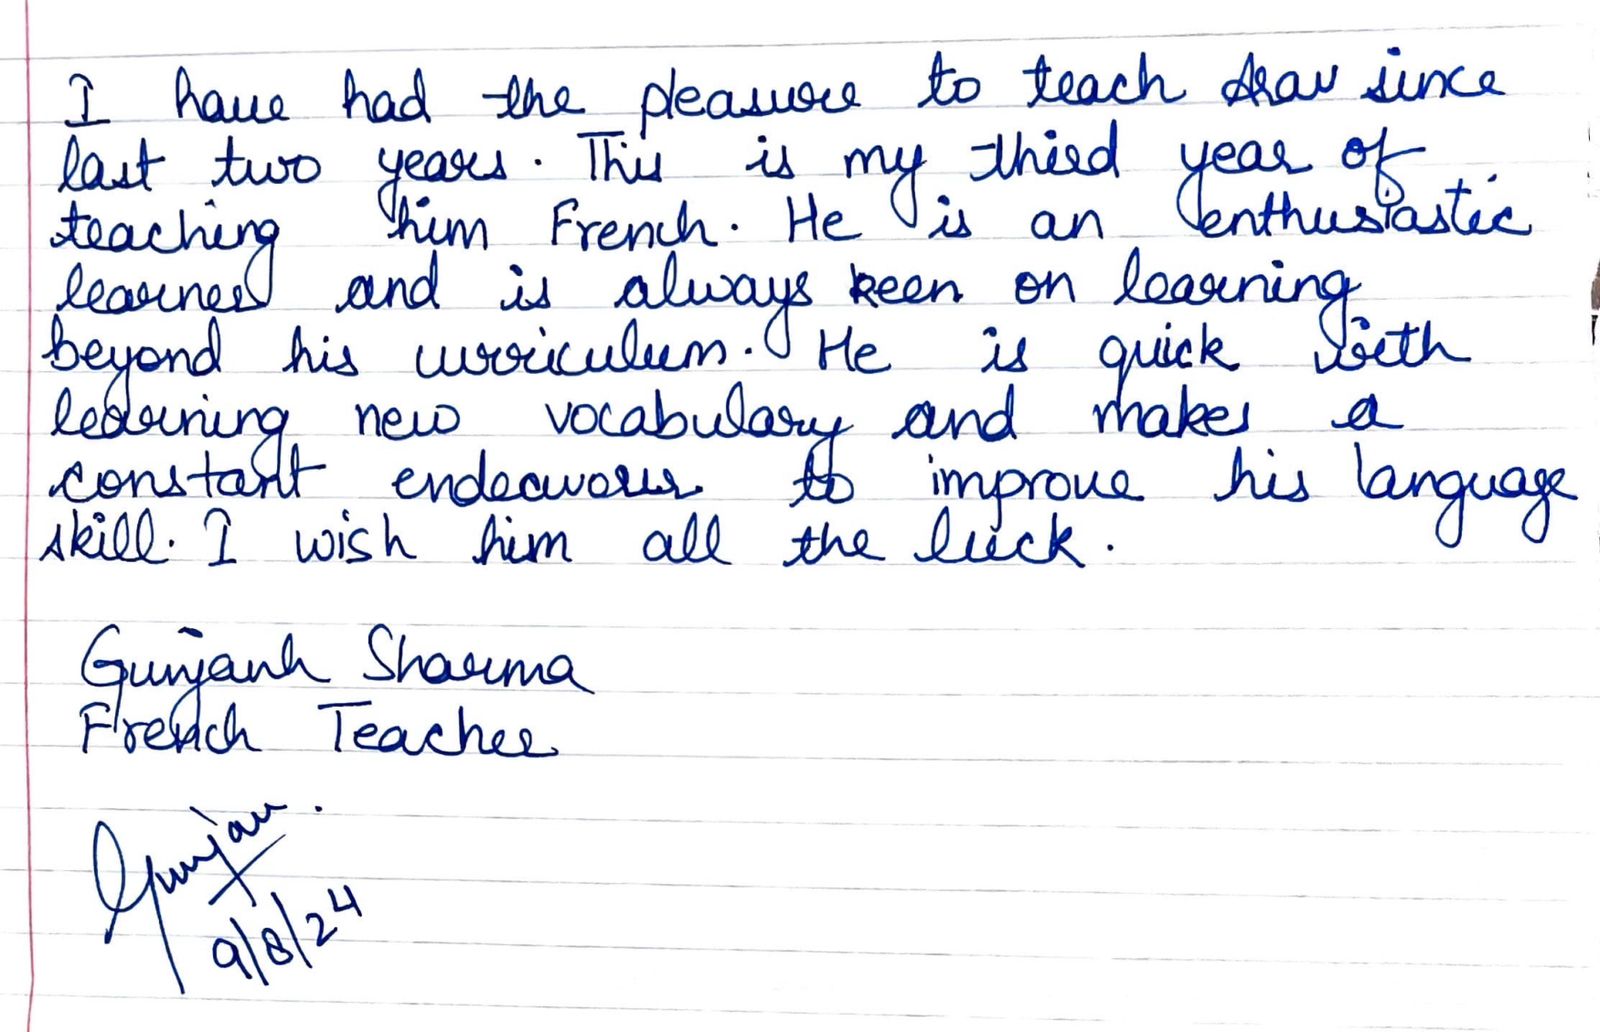 I have had the pleasure to teach since
last two years. This is my third year of
teaching him French. He is an enthusiastic
learner and is always keen on learning
beyond his curriculum. He is quick with
learning new vocabulary and makes a
constant endeavours to improve his language
skill. I wish him all the luck.
Gunjanh Sharma
French Teacher
Gunjan.
9/8/24